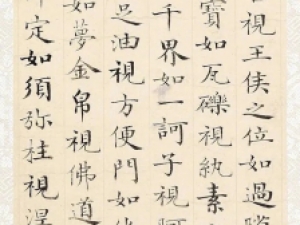 視王侯之位如過隙
寶如瓦礫視紈素
千界如一訶子視阿
足油視方便門如
如夢金帛視佛道
定如須弥柱視涅